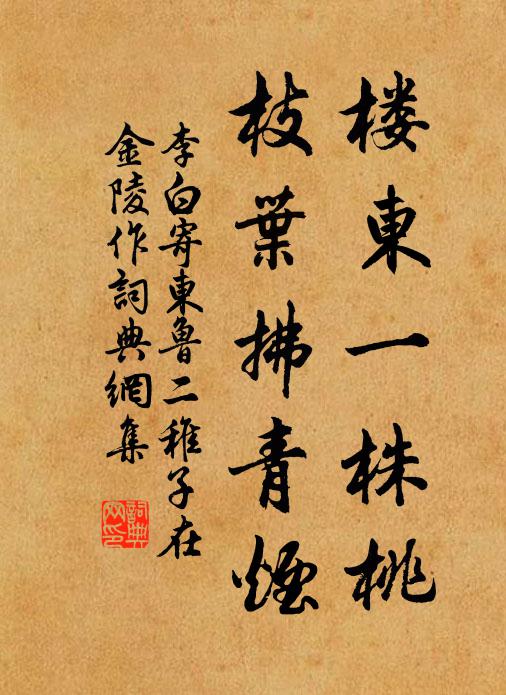 楼東一株桃
枝葉拂青煙
李白寄東魯二稚子在
金陵作詞典網集
詞典
网印